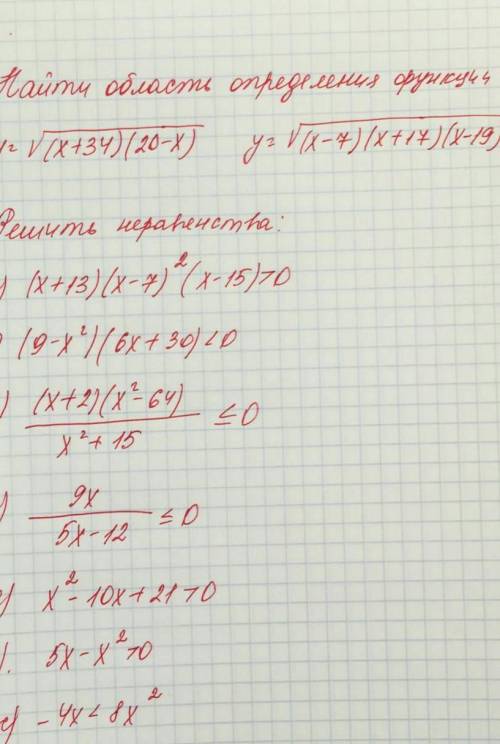 Найти область определения функции
y=√(x+34)(20-x) y=√(x-7)(x+17)(x-19)
Решить неравенства:
) (x+13)(x-7)²(x-15)>0
) (9-x²)(6x+30)<0
) (x+2)(x²-64)
x²+15 ≤0
) 9x
5x-12 ≤0
) x²-10x+21>0
). 5x-x²>0
) -4x<8x²